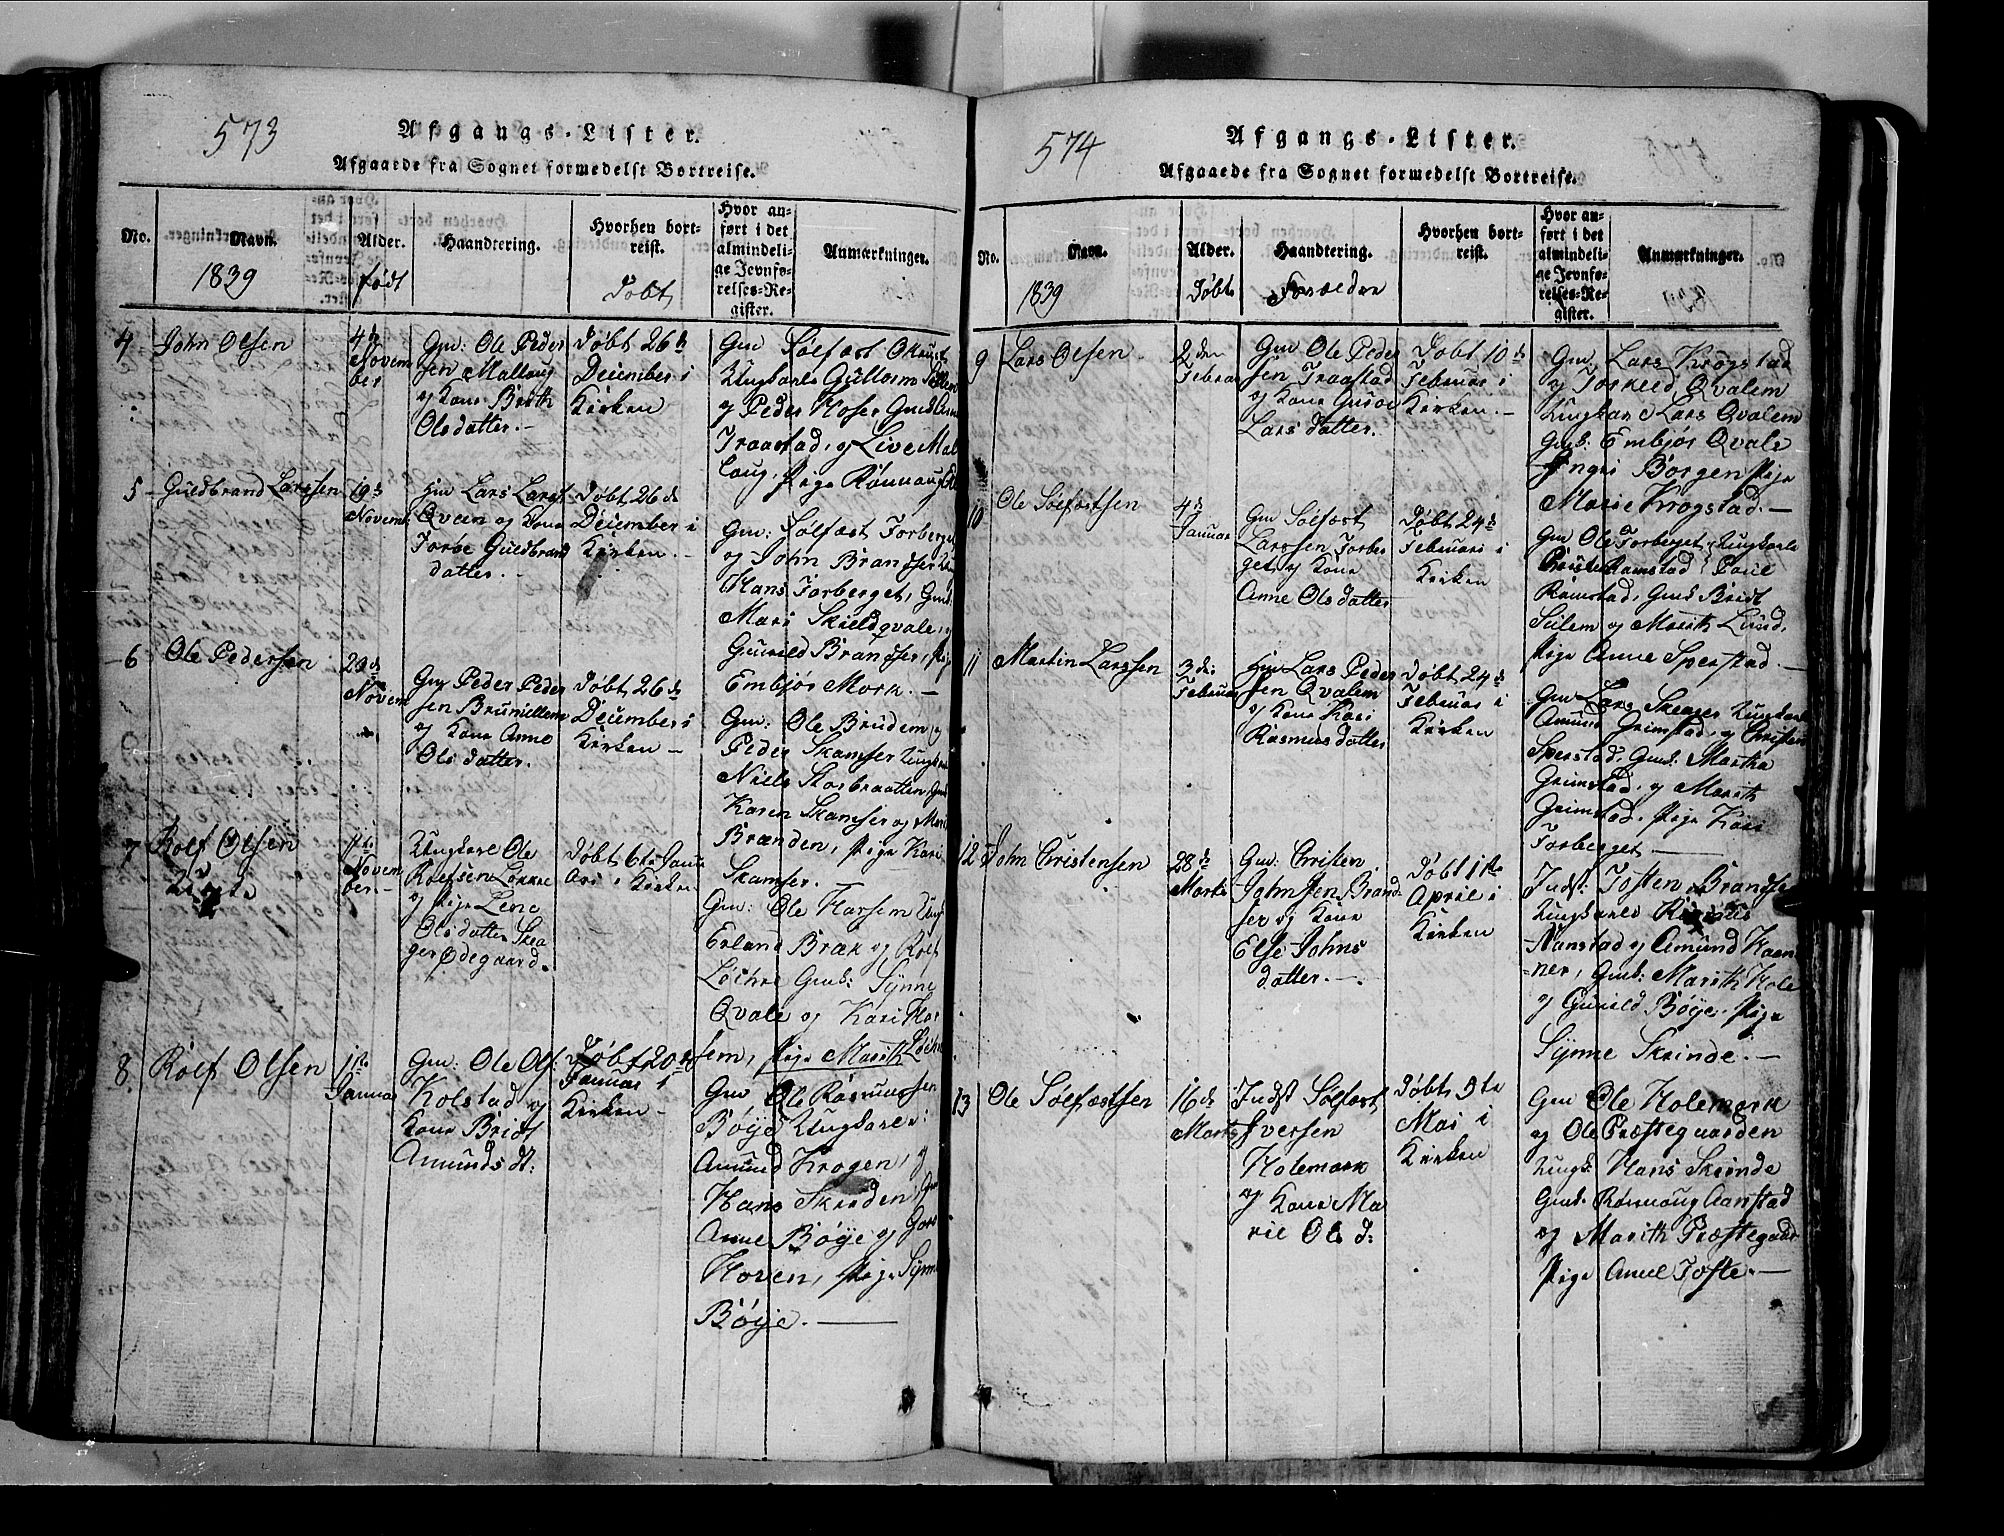 573
Afgangs-Lister.
Afgaaede fra Sognet formedelst Bortreise.
No.
Navn.
1839
Alder.
født
Haandtering.
Hvorhen bort-
reist.
Døbt
Hvor an-
ført i det
almindeli-
ge Jevnfø-
relses-Re-
gister.
Anmærkninger.
4
John Olsen
4de
Novem
ber
Gm: Ole Peder
sen Mallaug
og Kone Brith
Olsdatter.-
Døbt 26de
December i
Kirken
Gm Sølfæst
Ungkarle Gullorm
og Peder Moser Gmd
Traastad, og Live Mal
laug, Pige Rønnaug
5
Guldbrand Larssen
19de
Novemb
Gm Lars Larss
Qveen og Kone
Torøe Guldbrand
datter.-
Døbt 26de
December i
Kirken.-
Gm: Sølfæst Forberget
og John Brandser
Hans Forberget, Gmd:
Mari Skieldqvale, og
Gunild Brandser, Pige
Embjør Mork.-
6
Ole Pedersen
20de
Novem
Gm Peder Peder
sen Bruniellem
og Kone Anne
Olsdatter.
Døbt 26de
December i
Kirken-
Gm: Ole Bredem og
Peder Skamser Ungk
Niels Storbraatten, Gmd
Karen Skamser og Mari
Brænden, Pige Kari
Skamser.
7
Rolf Olsen
Uægte
Novem
ber.-
Ungkarl Ole
Rolfsen Løkke
og Pige Lene
Olsdatter Skea
ger Ødegaard.
Døbt 6te Janu
ari i Kirken
Gm: Ole Harsem
Erland Bræk og Rolf
Løchre Gmd: Synne
Qvale og Kari Har
sem, Pige Marith Løchr
8
Rolf Olsen
1ste
Januar
Gm: Ole Ols:
Kolstad og
Kone Bridt
Amundsdt:
Døbt 20de
Januar i
Kirken-
Gm Ole Rasmussen
Bøye Ungkarle:
Amund Krogen, og
Hans Skrinden, Gmd
Anne Bøye og
Hoven, Pige Synne
Bøye.
574
Afgangs-Lister.
Afgaaede fra Sognet formedelst Bortreise.
No.
Navn.
1839
Alder.
Døbt
Haandtering.
Forældre
Hvorhen bort-
reist.
Hvor an-
ført i det
almindeli-
ge Jevnfø-
relses-Re-
gister.
Anmærkninger.
9
Lars Olsen
2den
Februar
Gm Ole Peder
sen Traastad
og Kone Guroe
Larsdatter.
Døbt 10de
Februar i
Kirken.-
Gm: Lars Krogstad
og Torkeld Qvalem
Ungkarl Lars Qvalem
Gmd: Embjør Qvale
Ingri Borgen Pige
Marie Krogstad.-
10
Ole Sølfæstsen
4de
Januar
Gm Sølfæst
Larssen Forber
get og Kone
Anne Olsdatter
Døbt 24de
Februari i
Kirken
Gm Ole Forberget, Ungkarle
Ramstad, Poul
Ramstad, Gmd Bridt
Sulem og Marith Lund,
Pige Anne Sperstad.-
11
Martin Larssen
3die
Februar
Gm Lars Peder
sen Qvalem
og Kone Kari
Rasmusdatter
Døbt 24de
Februar i
Kirken
Gm: Lars Skeager Ungkarle
Amund Grimstad, og Christen
Sperstad, Gmd: Martha
Grimstad, og Marith
Grimstad, Pige Kari
Forberget
12
John Christensen
28de
Marts
Gm: Cristen
Johnssen Brand
ser og Kone
Else Johns
datter.-
Døbt 1ste
April i
Kirken
Indst: Tosten Brandser
Ungkarle Rasmus
Nanstad og Amund Haem
ner, Gmd: Marith Hole
og Gunild Bøye, Pige
Synne Skrinde.-
13
Ole Sølfæstsen
16de
Marts
Indst Sølfæst
Iversen
Holemork
og Kone Ma
rie Olsd:
Døbt 9te
Mai i
Kirken
Gm Ole Holemork
og Ole Præstegaarden
Ungk: Hans Skrinde
Gmd: Rønnoug Aanstad
og Marith Præstegaard
Pige Anne Tofte.-